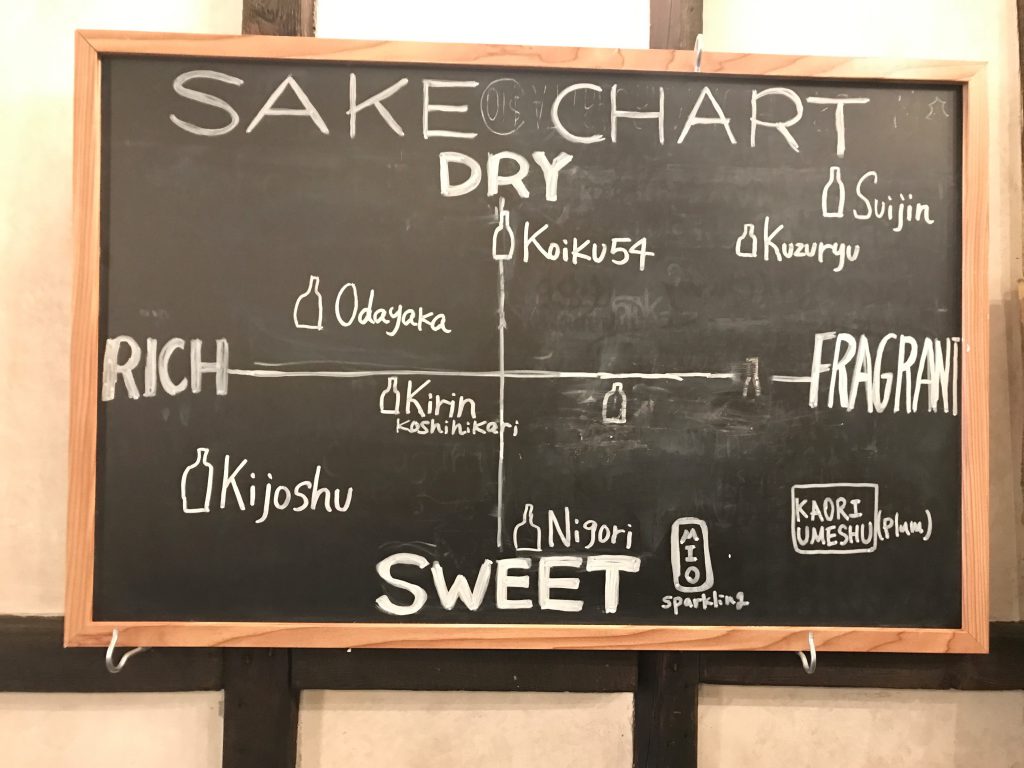 SAKE CHART
DRY
Suijin
Koiku54
Kuzuryu
Odayaka
RICH
FRAGRANT
Kirin
Koshihikari
Kijoshu
KAORI
UMESHU (Plum)
Nigori
MIO
SWEET
sparkling